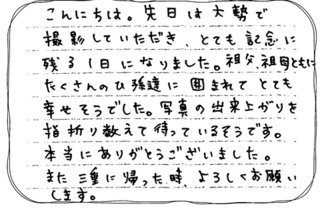 こんにちは。先日は大勢で
撮影していただき、とても記念に
残る1日になりました。祖父、祖母ともに
たくさんのひ孫達に囲まれてとても
幸せそうでした。写真の出来上がりを
指折り数えて待っているそうです。
本当にありがとうございました。
また三重に帰った時、よろしくお願い
します。